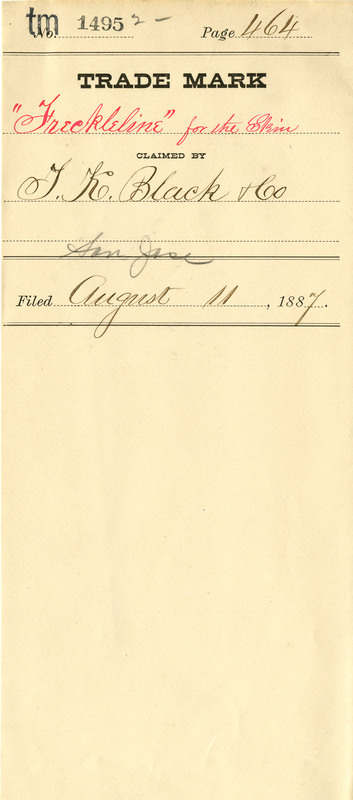 tm No. 1495 2 - Page 464
TRADE MARK
"Freckleline" for the Skin
CLAIMED BY
T. K. Black & Co
San Jose
Filed August 11, 1887.